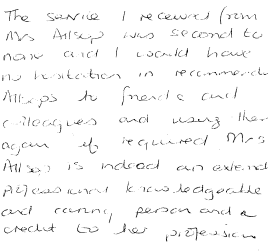 The service I received from
Mrs Allsop was second to
none and I would have
no hesitation in recommend
Allsops to friends and
colleagues and using them
again if required Mrs
Allsop is indeed an extend
professional knowledgeable
and caring person and a
credit to her profession